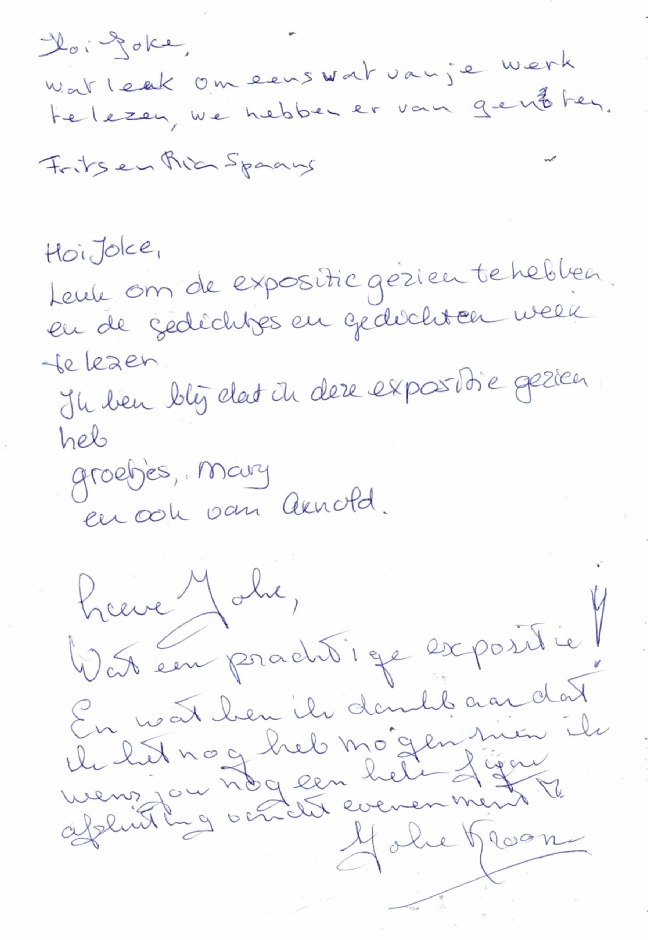 Hoi Joke,
wat leuk om eens wat van je werk
te lezen, we hebben er van genoten.
Frits en Ria Spaans
Hoi Joke,
Leuk om de expositie gezien te hebben.
en de gedichtjes en gedachten weer
te lezen
Ik ben blij dat ik deze expositie gezien
heb
groetjes, Mary
en ook van Arnold.
Lieve Joke,
Wat een prachtige expositie!
En wat ben ik dankbaar dat
ik het nog heb mogen zien ik
wens jou nog een hele fijne
afsluiting van dit evenement
Joke Kroon